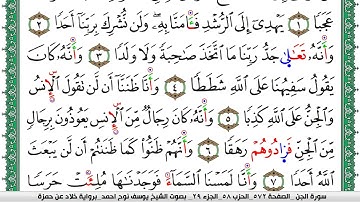 عَجَبًا ١ يَهْدِىٓ إِلَى ٱلرُّشْدِ فَـَٔامَنَّا بِهِۦ ۖ وَلَن نُّشْرِكَ بِرَبِّنَآ أَحَدًا ٢
وَأَنَّهُۥ تَعَـٰلَىٰ جَدُّ رَبِّنَا مَا ٱتَّخَذَ صَـٰحِبَةً وَلَا وَلَدًا ٣ وَأَنَّهُۥ كَانَ
يَقُولُ سَفِيهُنَا عَلَى ٱللَّهِ شَطَطًا ٤ وَأَنَّا ظَنَنَّآ أَن لَّن تَقُولَ ٱلْإِنسُ
وَٱلْجِنُّ عَلَى ٱللَّهِ كَذِبًا ٥ وَأَنَّهُۥ كَانَ رِجَالٌ مِّنَ ٱلْإِنسِ يَعُوذُونَ بِرِجَالٍ
مِّنَ ٱلْجِنِّ فَزَادُوهُمْ رَهَقًا ٦ وَأَنَّهُمْ ظَنُّوا۟ كَمَا ظَنَنتُمْ أَن لَّن يَبْعَثَ
ٱللَّهُ أَحَدًا ٧ وَأَنَّا لَمَسْنَا ٱلسَّمَآءَ فَوَجَدْنَـٰهَا مُلِئَتْ حَرَسًا
سورة الجن - الصفحة ٥٧٢ - الجزء ٢٩ - الحزب ٥٨ بصوت الشيخ يوسف نوح احمد برواية خلاد عن حمزة